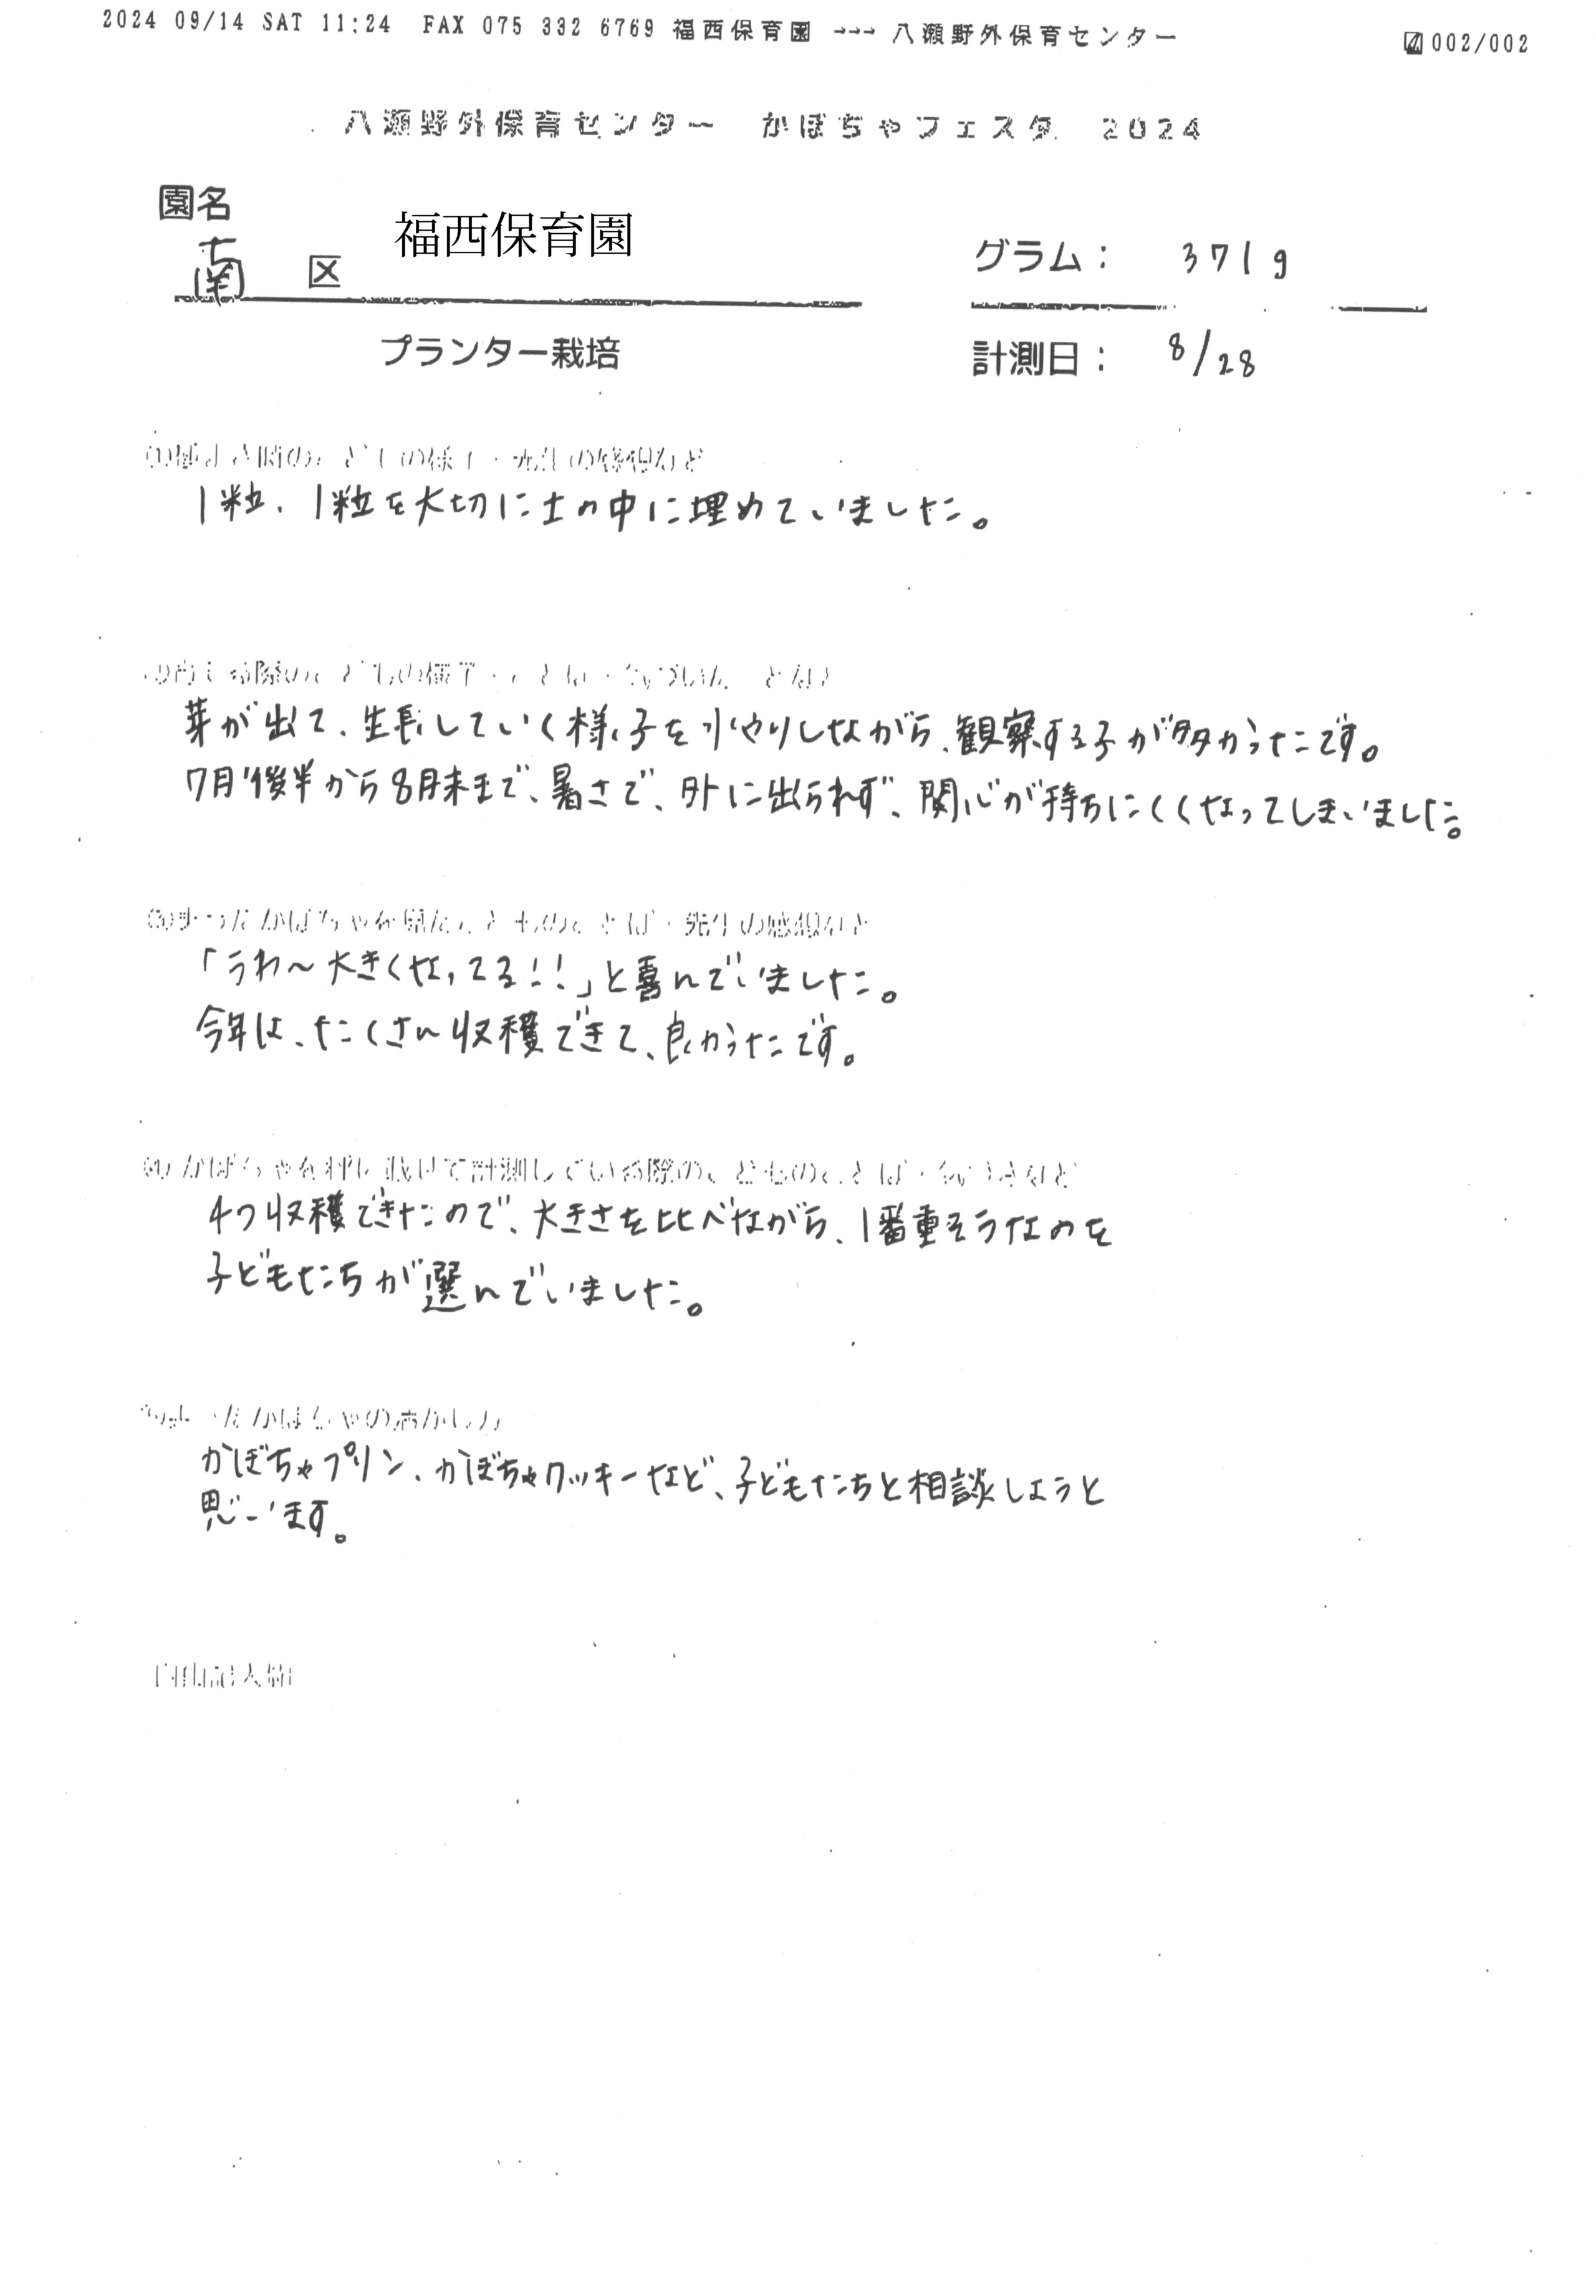 2024 09/14 SAT 11:24 FAX 075 332 6769 福西保育園 →→→ 八瀬野外保育センター 002/002
八瀬野外保育センター かぼちゃフェスタ 2024
園名
南 区 福西保育園
グラム： 371g
プランター栽培
計測日： 8/28
1粒、1粒を大切に土の中に埋めていました。
芽が出て、生長していく様子を水やりしながら、観察する子が多かったです。
7月後半から8月末まで、暑さで、外に出られず、関心が持ちにくくなってしまいました。
「うわ～大きくなってる！！」と喜んでいました。
今年は、たくさん収穫できて、良かったです。
4つ収穫できたので、大きさを比べながら、1番重そうなのを
子どもたちが選んでいました。
かぼちゃプリン、かぼちゃクッキーなど、子どもたちと相談しようと
思います。